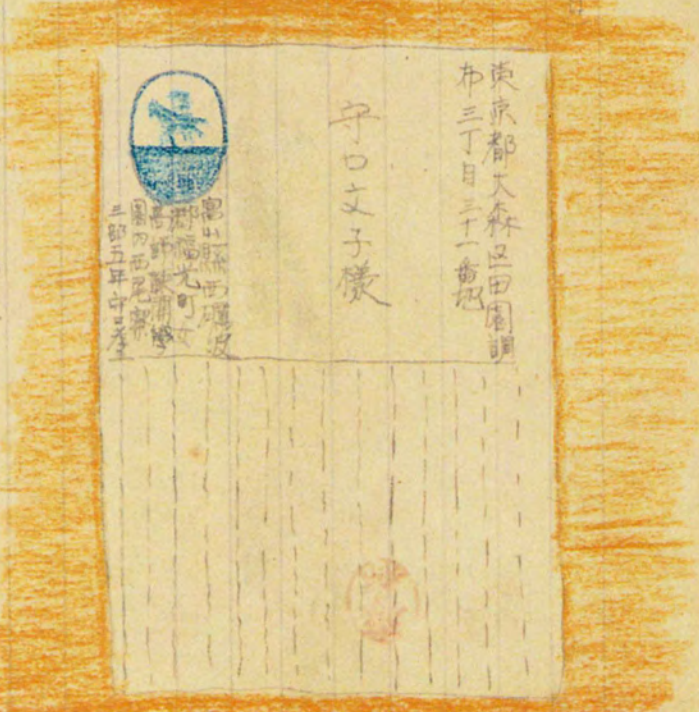 東京都大森区田園調
布三丁目三十一番地
守口文子様
富山縣西礪波
郡福光町女
高師學
園内西尾寮
三部五年守口